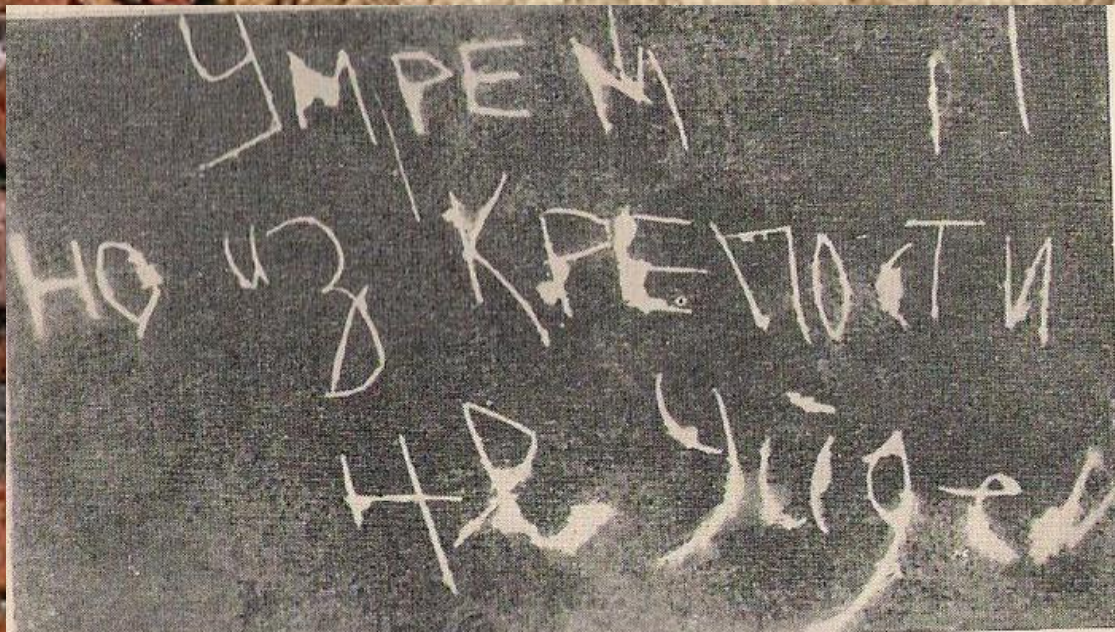 Умрем,
но из крепости
не уйдем